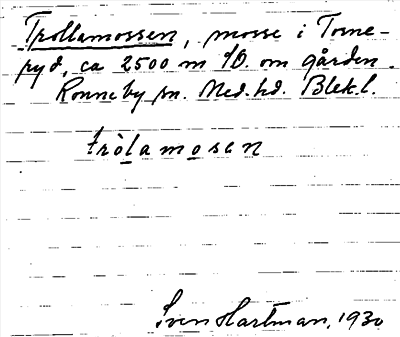 Trollamossen, mosse i Torne-
ryd, ca 2500 m SO. om gården.
Ronneby sn. Med. hd. Blek. l.
tròlamosen
Sven Hartman, 1930